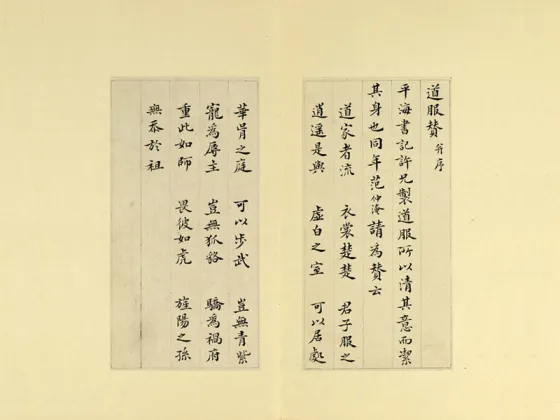 道服赞 并序
平海書記許兄製道服所以清其意而潔
其身也同年范仲淹請為赞云
道家者流 衣裳楚楚 君子服之
逍遥是與 虛白之室 可以居處
華胥之庭 可以步武 豈無青紫
寵為辱主 豈無狐貉 驕為禍府
重此如師 畏彼如虎 旌陽之孫
無忝於祖